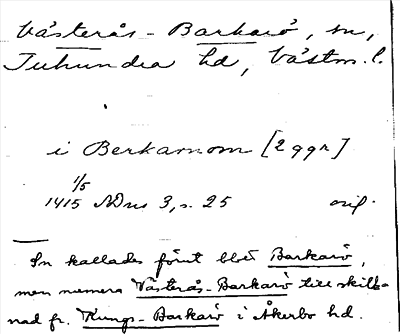 Västerås-Barkarö, sn,
Tuhundra hd, Västm. l.
i Berkarnom [2 ggr]
1/5
1415 NDns 3, s. 25 orig.
Sn kallades förut blott Barkarö,
men numera Västerås-Barkarö till skill-
nad fr. Kungs-Barkarö i Åkerbo hd.